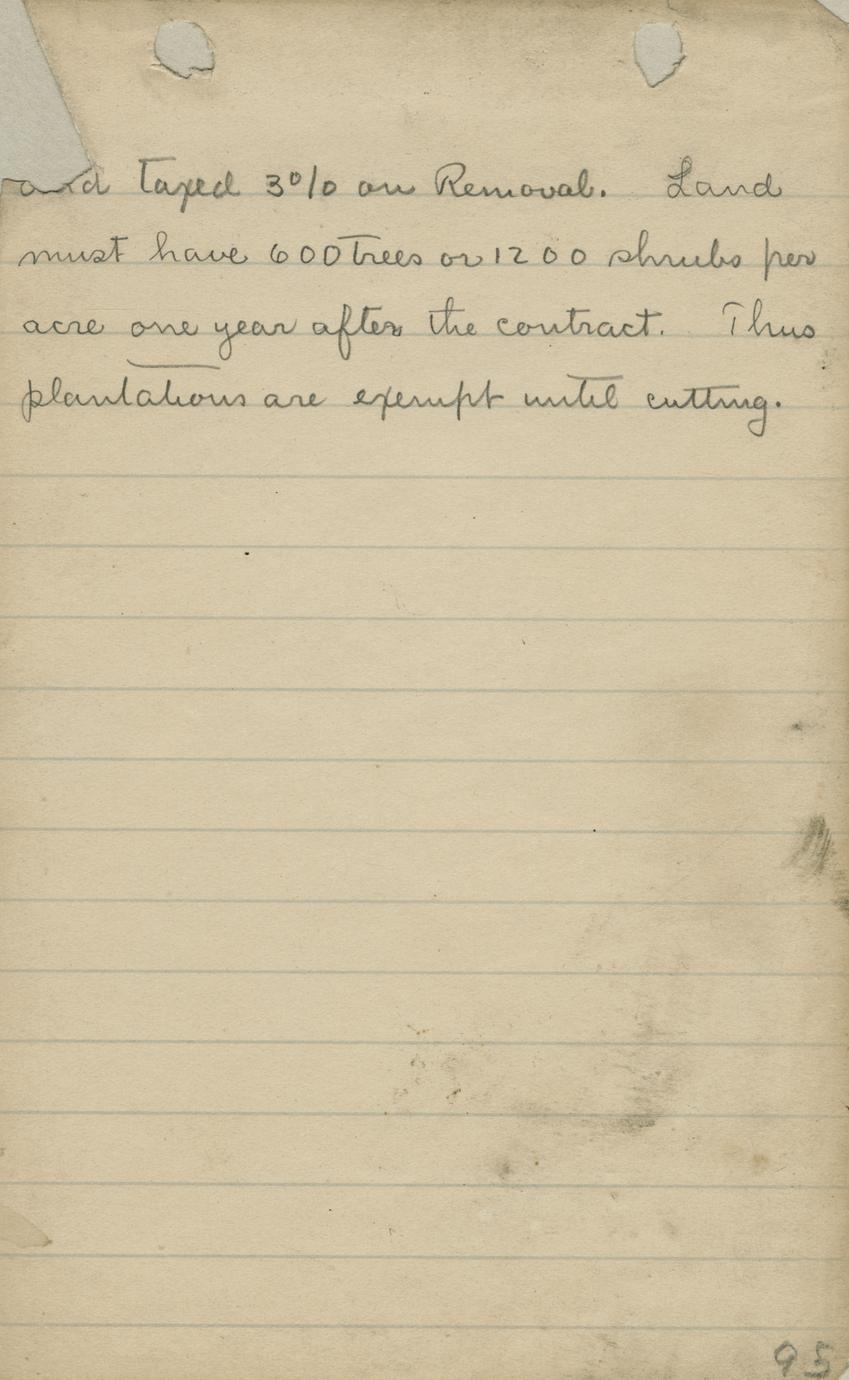 and taxed 3% on Removal. Land
must have 600 trees or 1200 shrubs per
acre one year after the contract. Thus
plantations are exempt until cutting.
95